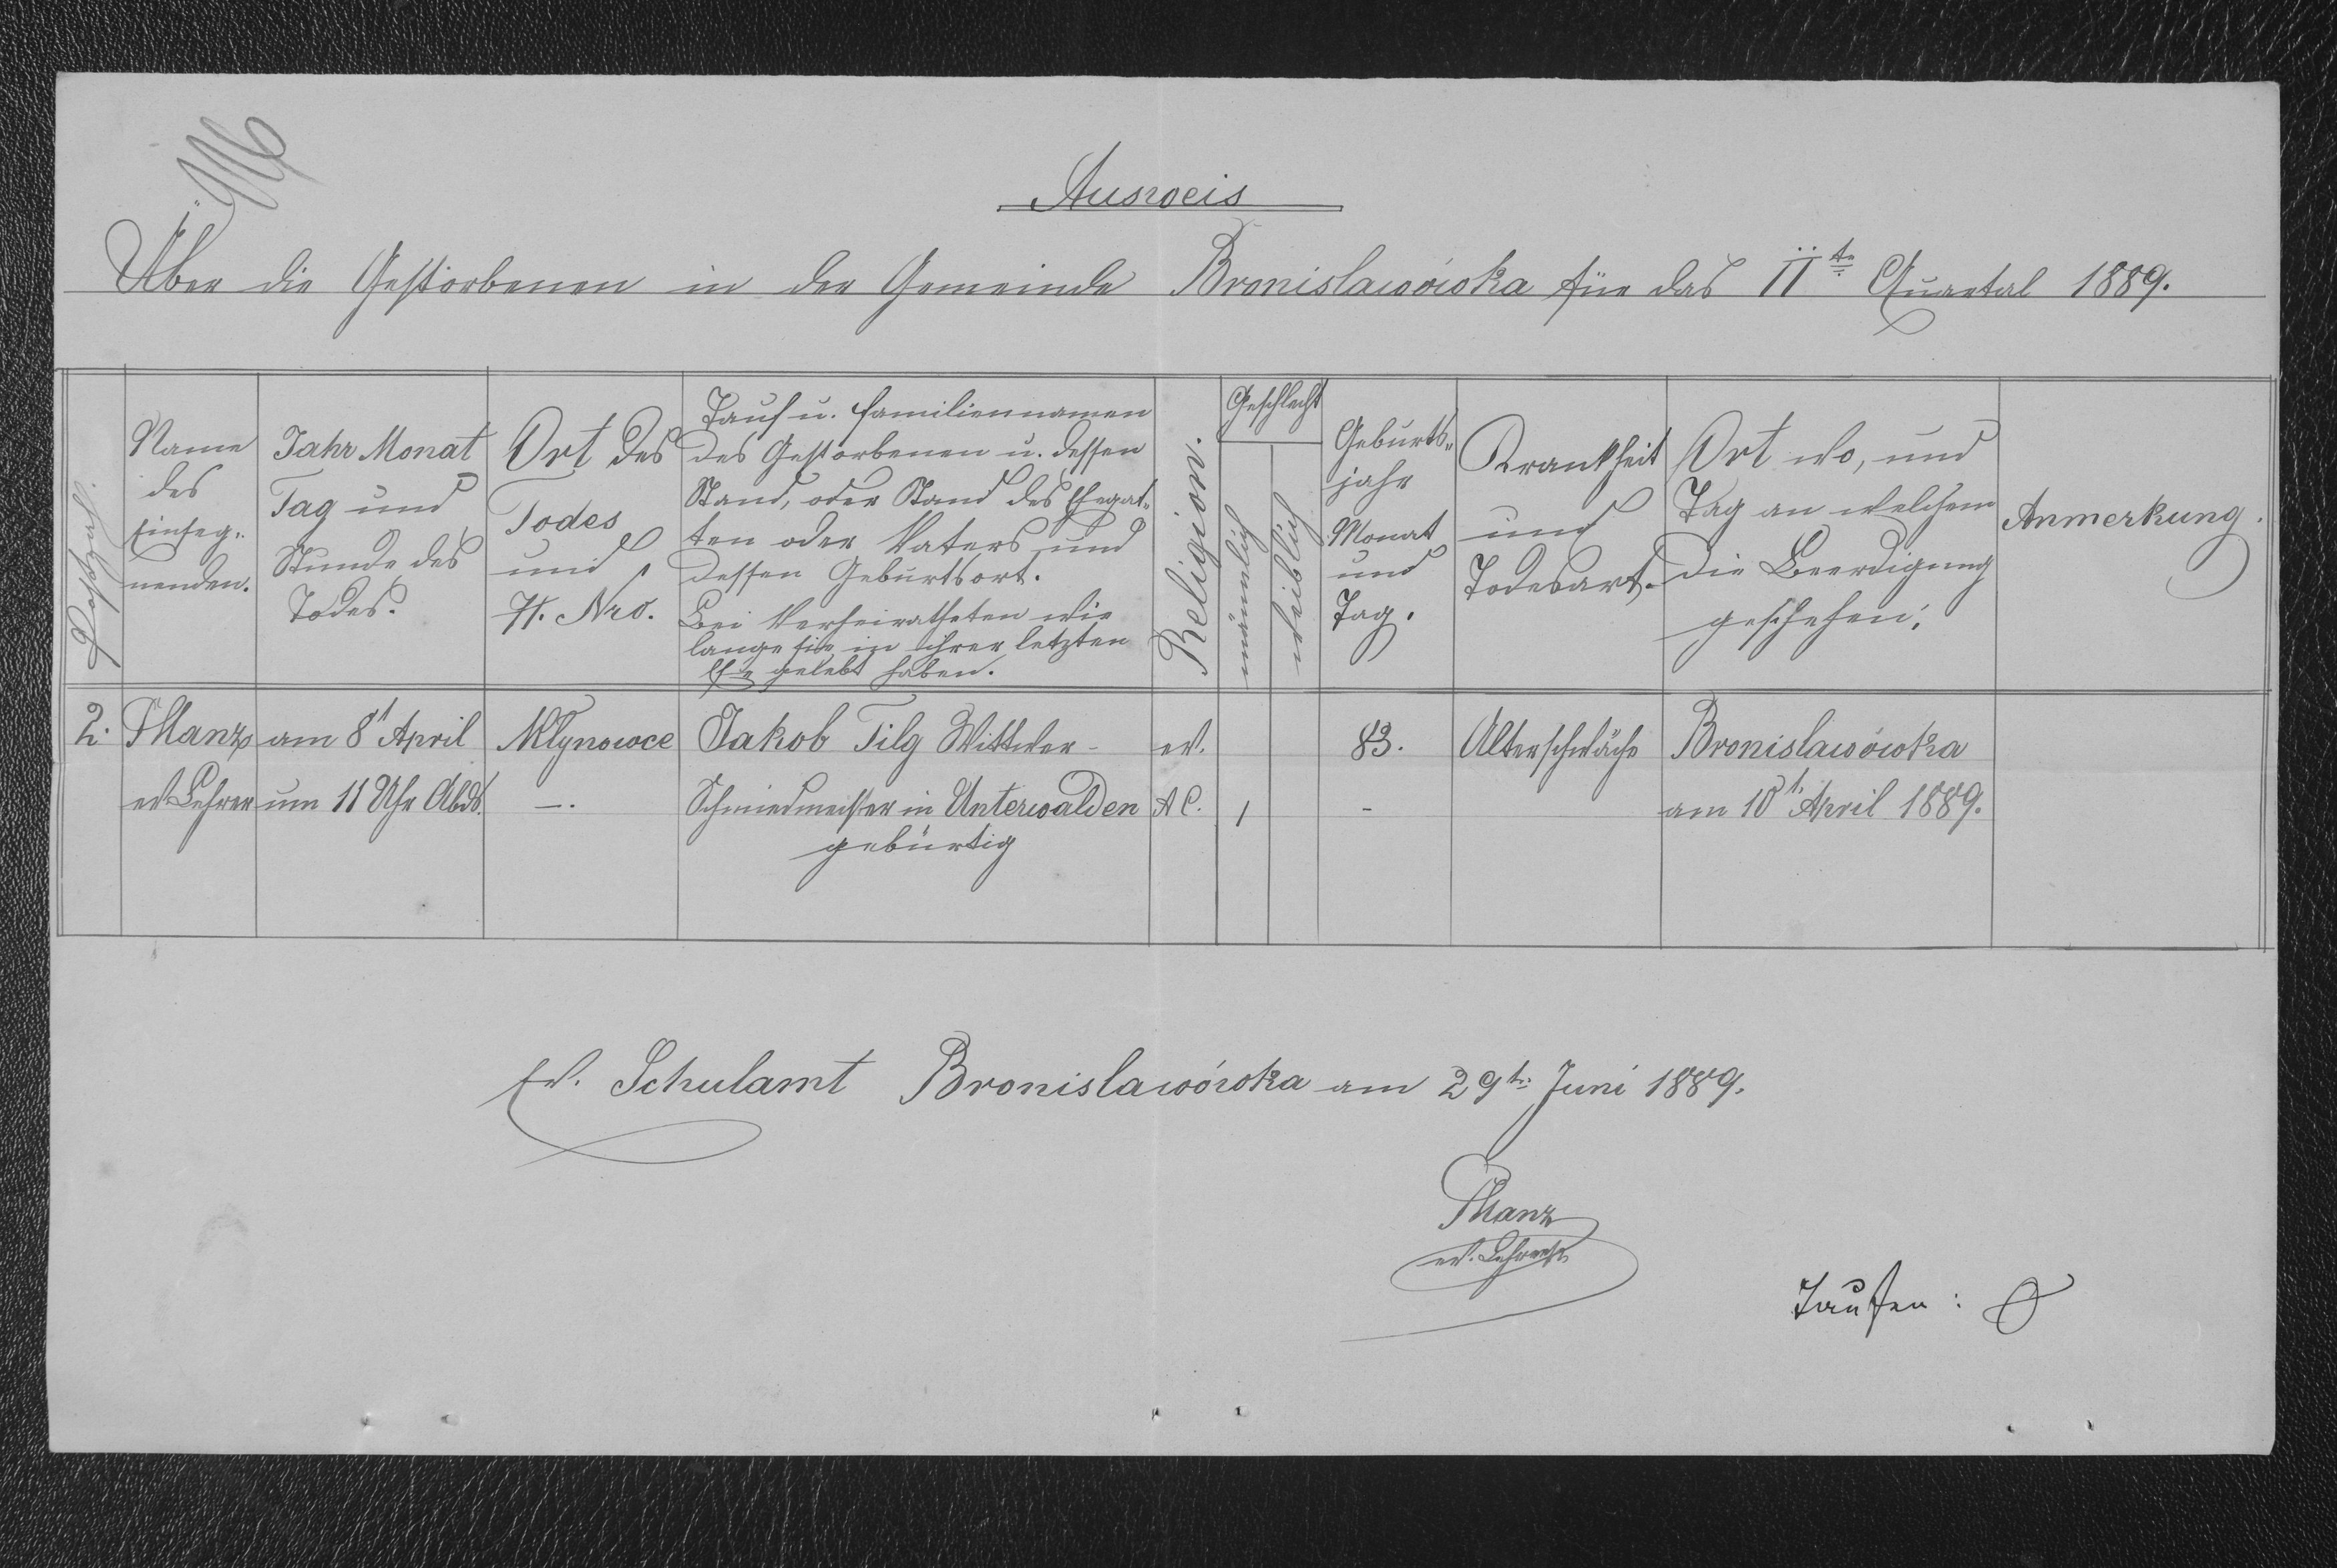 Ausweis
Über die Gestorbenen in der Gemeinde Bronislawówka für das IIte Quartal 1889.
Postzahl.
Name
des
Einseg-
nenden.
Jahr Monat
Tag und
Stunde des
Todes.
Ort des
Todes
und
H. Nro.
Tauf u. Familiennamen
des Gestorbenen u. dessen
Stand, oder Stand des Ehegat-
ten oder Vaters und
dessen Geburtsort.
Bei Verheiratheten wie
lange sie in ihrer letzten
Ehe gelebt haben.
Religion.
Geschlecht
männlich
weiblich
Geburts-
jahr
Monat
und
Tag.
Krankheit
und
Todesart.
Ort wo, und
Tag an welchem
die Beerdigung
geschehen.
Anmerkung.
2. Manz am 8t April Mlynowce Jakob Tilg Wittwer - ev. 83. Alterschwäche Bronislawówka
ev. Lehrer um 11 Uhr Abds. —. Schmiedmeister in Unterwalden A C. 1 - am 10t. April 1889.
gebürtig
Ev. Schulamt Bronislawówka am 29t. Juni 1889.
Manz
ev. Lehrer
Taufen : 0